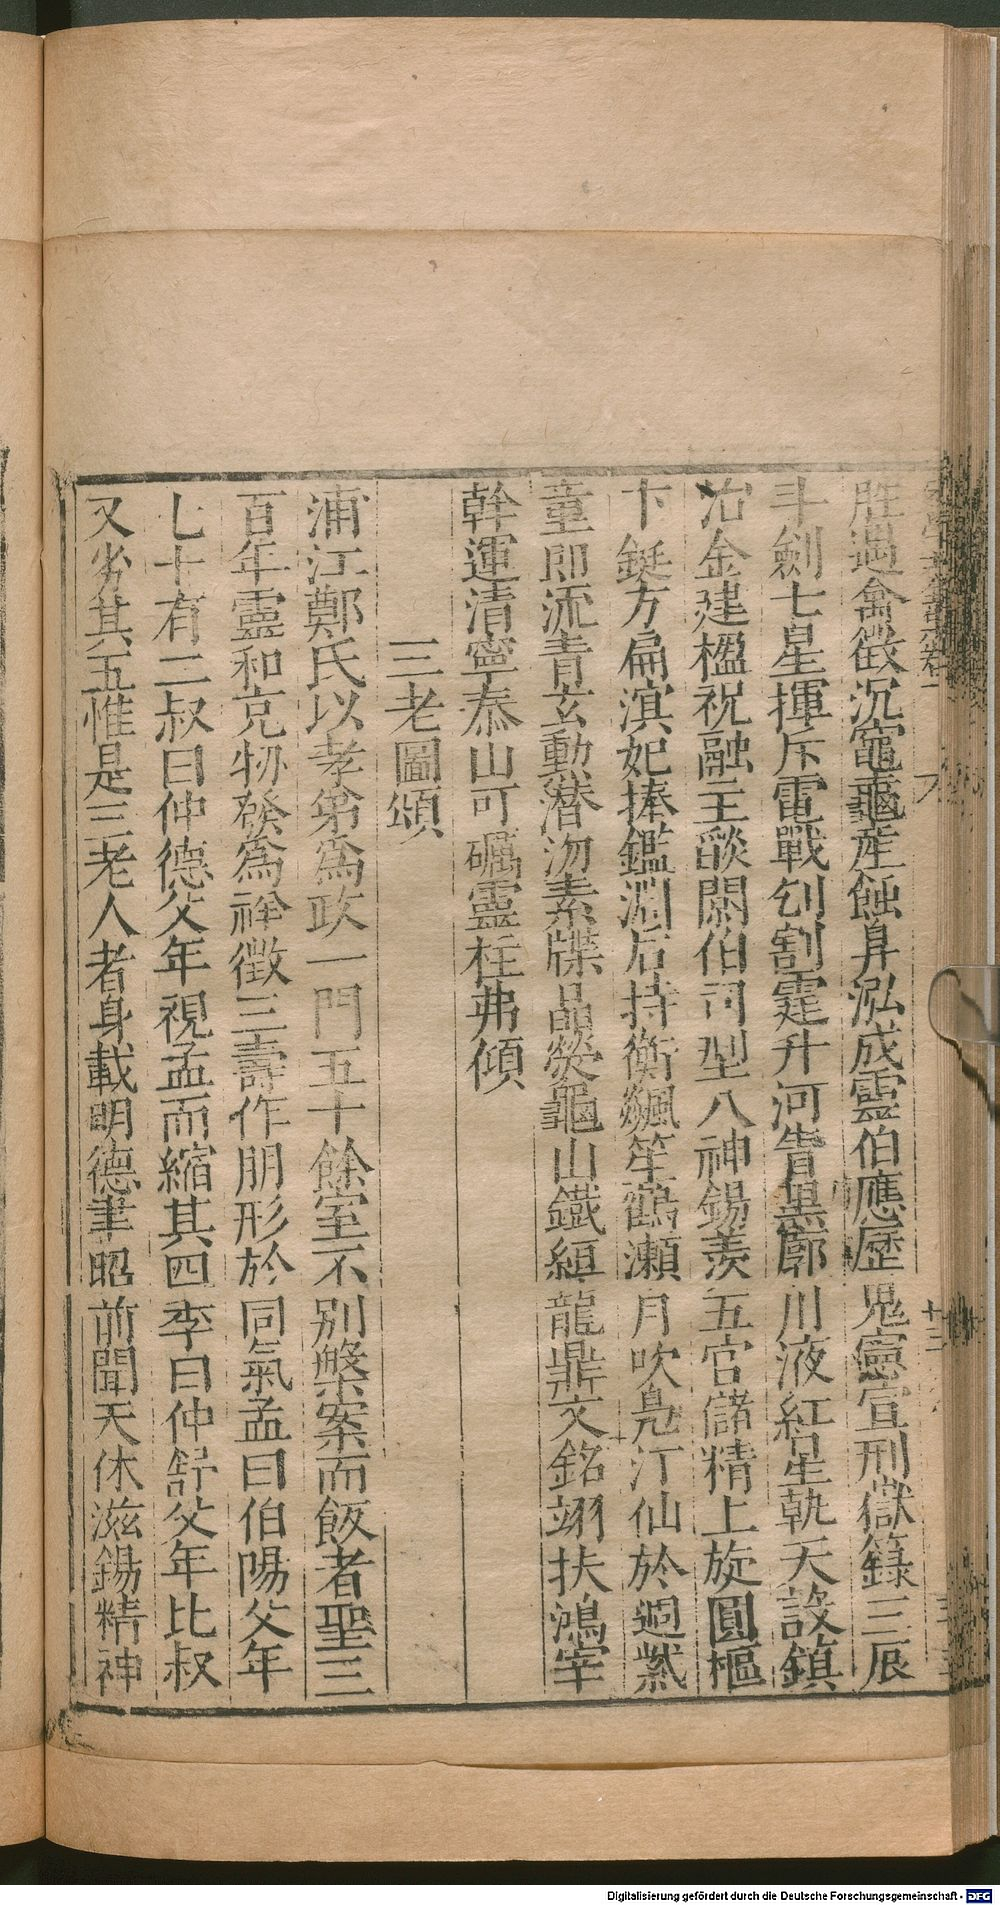 胜遇禽徵沉竈龜產蝕舁泓成靈伯應歷鬼寰宣刑嶽籙三辰
斗劍七星揮斥電戰刉割霆升河眚里廓川液紅星執天設鎮
冶金建楹祝融主燄閼伯司型八神錫羨五官儲精上旋圓樞
下鋌方扁瀇妃捧鑑淵后持衡颿笙鶴瀨月吹鳧汀仙於迴
童即流青玄動潜沕素牒晶熒龜山鐵絙龍鼎文銘翊扶鴻宰
幹運清寧泰山可礪靈柱弗傾
三老圖頌
浦江鄭氏以孝第為政一門五十餘室不別槃案而飯者聖三
百年靈和克物發為祥徵三壽作朋形於同氣孟曰伯陽父年
七十有二叔曰仲德父年視孟而縮其四季曰仲舒父年比叔
又劣其五惟是三老人者身載明德聿昭前聞天休滋錫精神
Digitalisierung gefördert durch die Deutsche Forschungsgemeinschaft - DFG